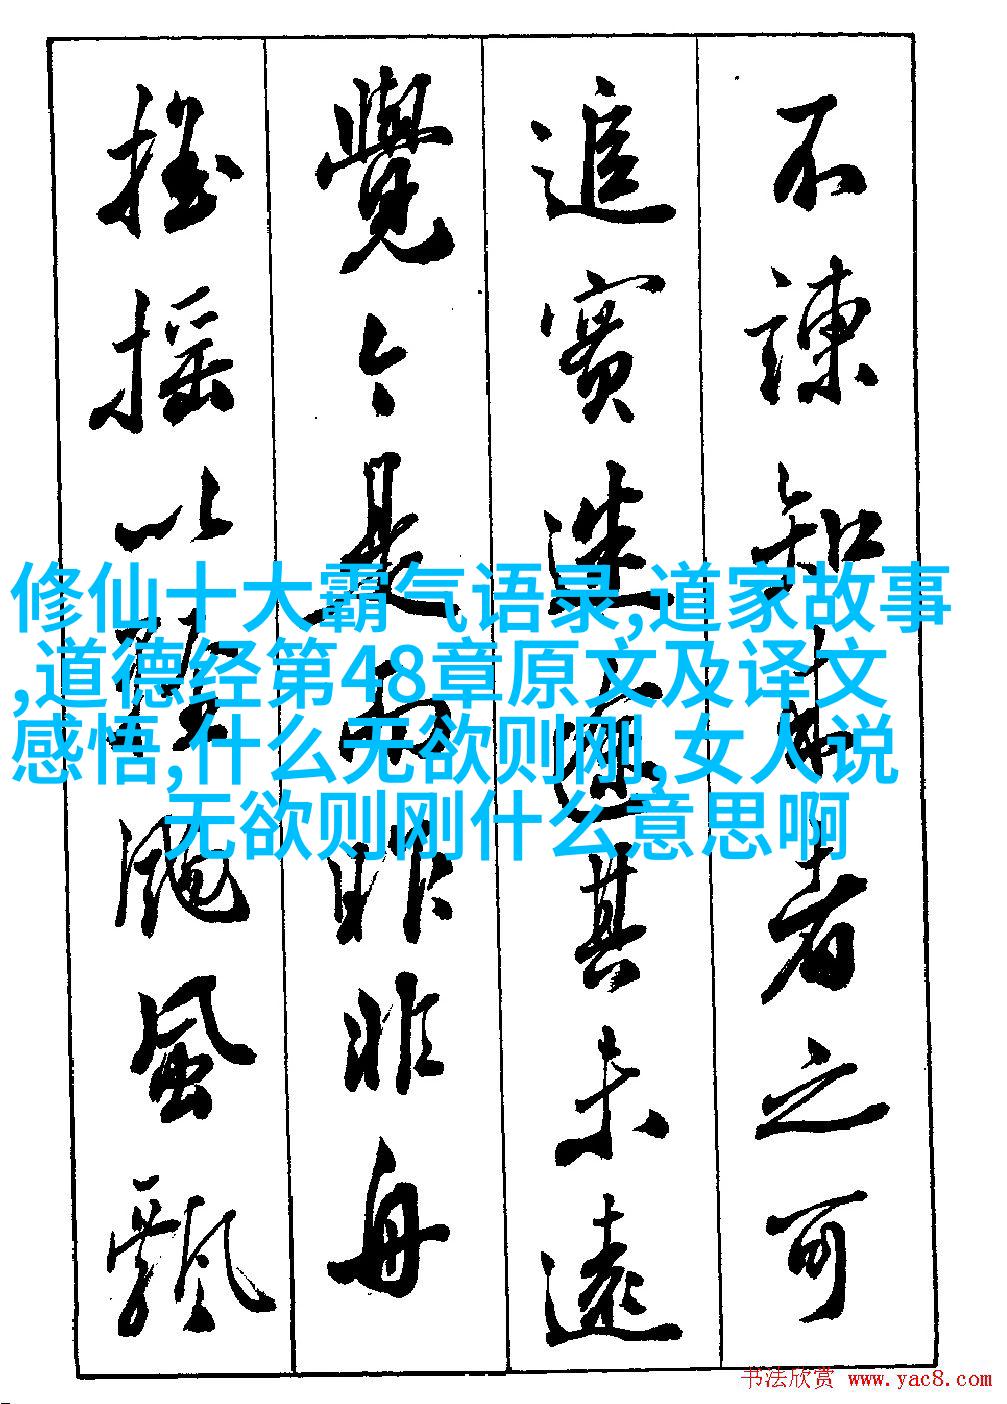 不諫知来者之可
追實迷途其未遠
覺今是而昨非舟
搖摇以輕颺風飄
修仙十大霸气语录,道家故事
,道德经第48章原文及译文
感悟,什么无欲则刚,女人说
无欲则刚什么意思啊
书法欣赏 www.yac8.com